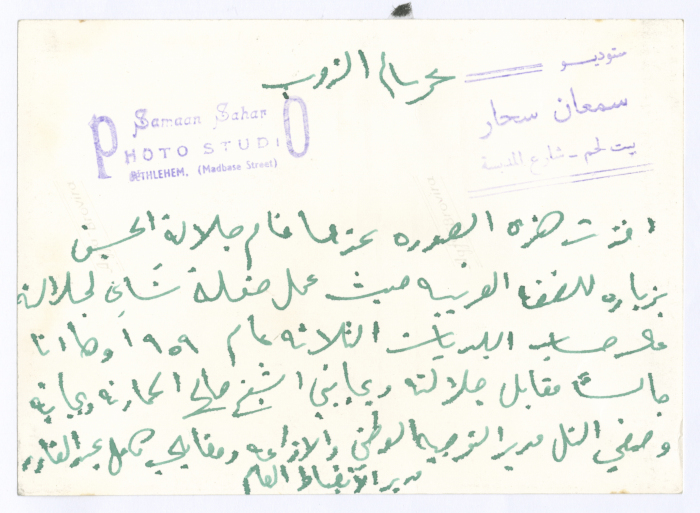 ستوديو
سمعان سحار
بيت لحم - شارع المدبسة
Samaan Sahar
PHOTO STUDIO
BETHLEHEM. (Madbase Street)
اخذت هذه الصوره عندما قام جلالة الحسين
بزياره للضفه الغربيه حيث عمل حفلة شاي لجلالته
على حساب البلديات الثلاثه عام ١٩٥٩ وها انا
جالساً مقابل جلالته وبجانبي الشيخ صالح وبجانبه
وصفي التل مدير التوجيه الوطني والاذاعه ومقابلي كامل عبدالقادر
مدير الانضباط العام